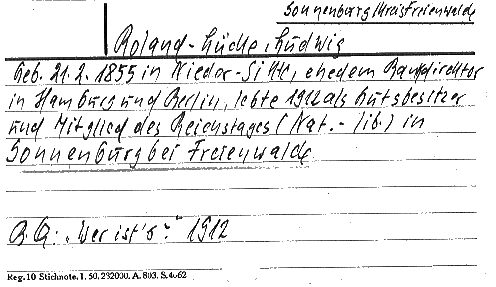 Sonnenburg Kreis Freienwalde
Roland-Lücke, Ludwig
Geb. 21.2.1855 in Nieder-Sitte, ehedem Bankdirektor
in Hamburg und Berlin, lebte 1912 als Gutsbesitzer
und Mitglied des Reichstages (Nat.-lib.) in
Sonnenburg bei Freienwalde
B.Q: „Wer ist's?" 1912
Reg. 10 Stichnote. 1. 50. 232000. A. 803. S. 4662